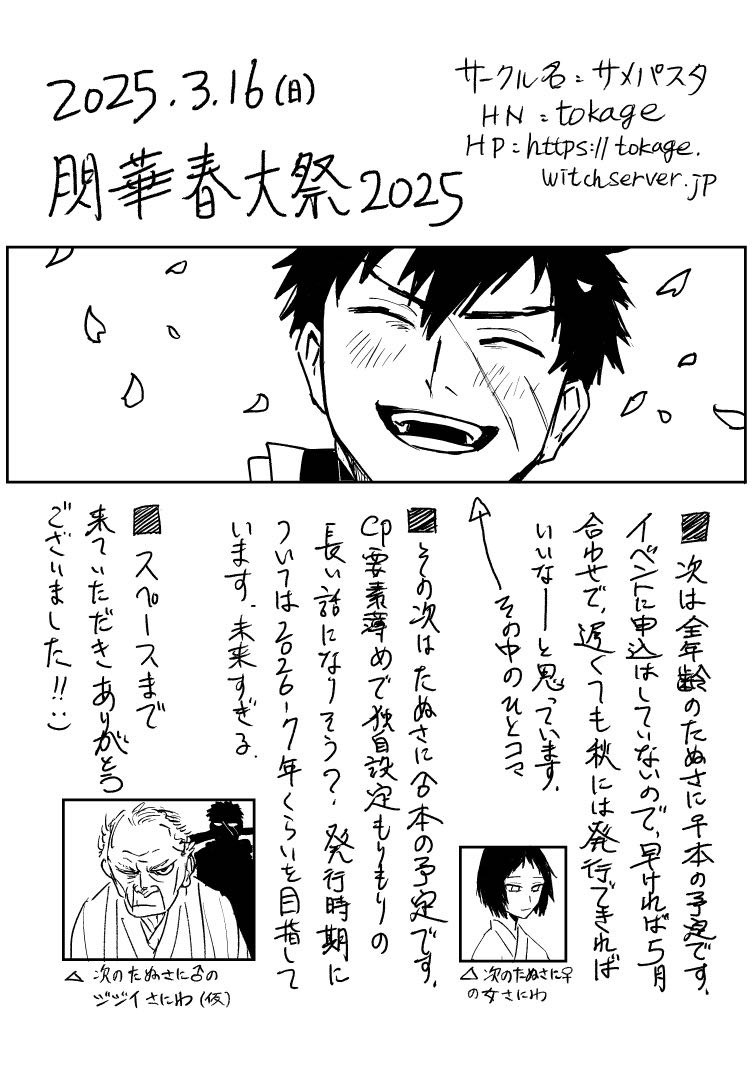 2025.3.16(日)
閃華春大祭2025
サークル名：サメパスタ
HN：tokage
HP：https://tokage.
witchserver.jp
■次は全年齢のたぬさに♀本の予定です.
イベントに申込はしていないので,早ければ5月
合わせで,遅くても秋には発行できれば
いいなーと思っています.
←その中のひとコマ
■その次はたぬさに♂本の予定です.
CP要素薄めで独自設定もりもりの
長い話になりそう？.発行時期に
ついては2026~7年くらいを目指して
います.未来すぎる.
■スペースまで
来ていただきありがとう
ございました!!:)
△次のたぬさに♀
の女さにわ
△次のたぬさに♂の
ジジイさにわ(仮)